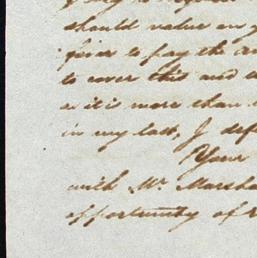 should value on y
prior to pay the am
to cover this and t
as it is more than
in my last, I def
Your
with Mr. Marsha
opportunity of